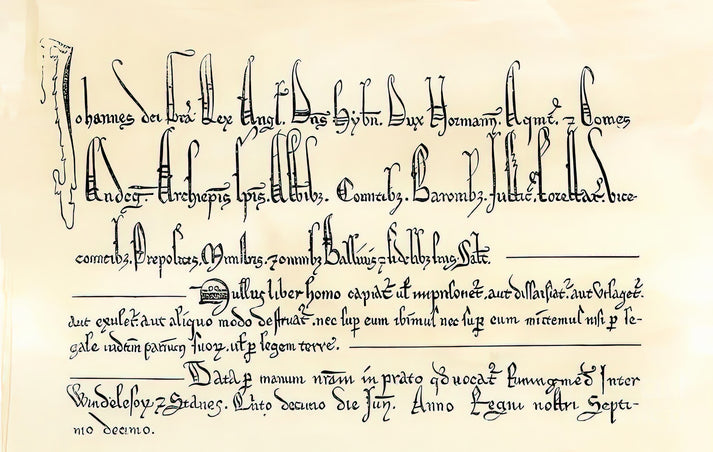 Johannes dei Gra Rex Angl. Dns Hybn. Dux Normann. Aqmt. ⁊ Comes
Andeg. Archiepis Epis. Abbibz. Comitibz. Baronibz. Justic. Forestar. vice-
comitibz, Prepositis, Ministris. ⁊ omnibz Ballivis ⁊ fidelibz suis. Salt.
Nullus liber homo capiat ut imprisonet, aut dissaisiat. aut Utlaget.
Aut exulet. aut aliquo modo destruat. nec sup eum ibimus nec sup eum mittemus nisi p le-
gale iudim parium suoꝝ. ut p legem terre.
Data p manum nram in prato qd vocat Runingmed Inter
Windelesoꝝ ⁊ Stanes. Qinto decimo die Jun. Anno Regni nostri Septi-
mo decimo.